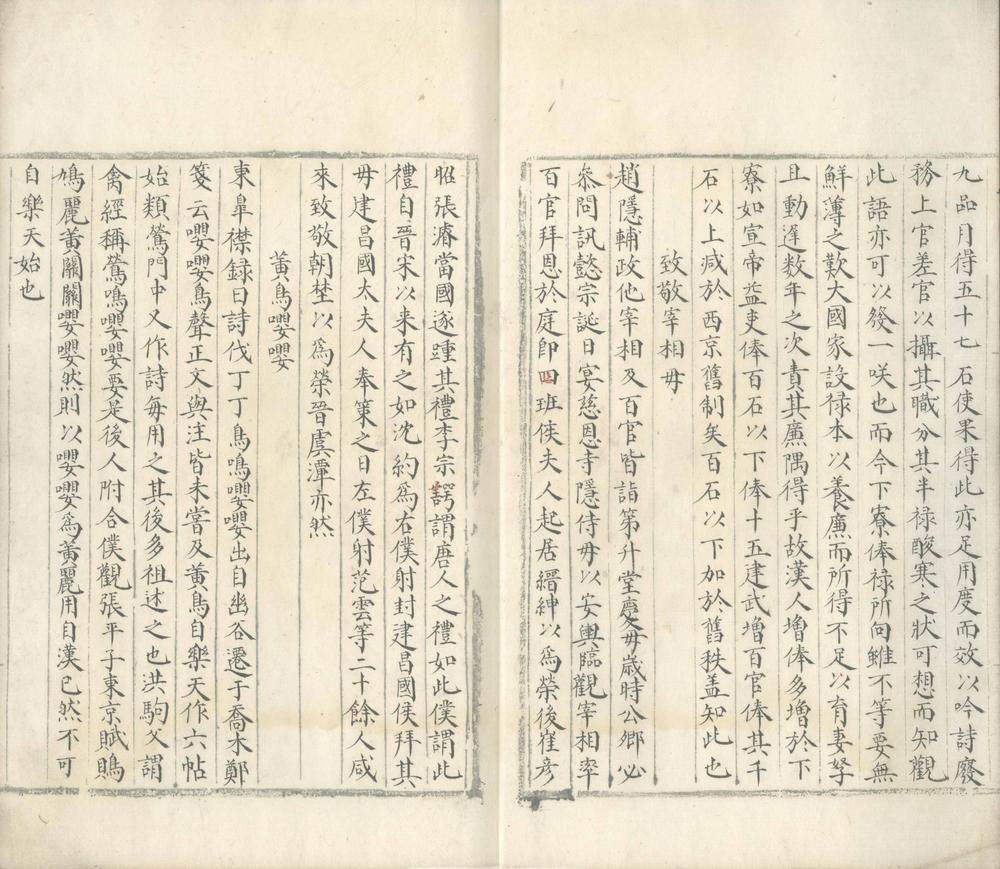 九品月得五十七石使果得此亦足用度而效以吟詩廢
務上官差官以攝其職分其半禄酸寒之狀可想而知觀
此語亦可以發一咲也而今下寮俸禄所向雖不等要無
鮮薄之歎大國家設禄本以養廉而所得不足以育妻孥
且動遲数年之次責其廉隅得乎故漢人增俸多增於下
寮如宣帝益吏俸百石以下俸十五建武增百官俸其千
石以上减於西京舊制矣百石以下加於舊秩盖知此也
致敬宰相毋
趙隱輔政他宰相及百官皆詣第升堂慶毋歳時公卿必
叅問訊懿宗誕日宴慈恩寺隱侍毋以安輿臨觀宰相率
百官拜恩於庭即回班候夫人起居縉紳以為榮後崔彦
昭張濬當國逐踵其禮李宗諤謂唐人之禮如此僕謂此
禮自晉宋以来有之如沈約為右僕射封建昌國侯拜其
毋建昌國太夫人奉策之日左僕射范雲等二十餘人咸
來致敬朝埜以為榮晉虞潭亦然
黄鳥嚶嚶
東皐襍録曰詩伐丁丁鳥鳴嚶嚶出自幽谷遷于喬木鄭
箋云嚶嚶鳥聲正文與注皆未嘗及黄鳥自樂天作六帖
始類鶯門中又作詩每用之其後多祖述之也洪駒父謂
禽經稱鶯鳴嚶嚶要是後人附合僕觀張平子東京賦鵙
鳩麗黄關關嚶嚶然則以嚶嚶為黄麗用自漢已然不可
自樂天始也